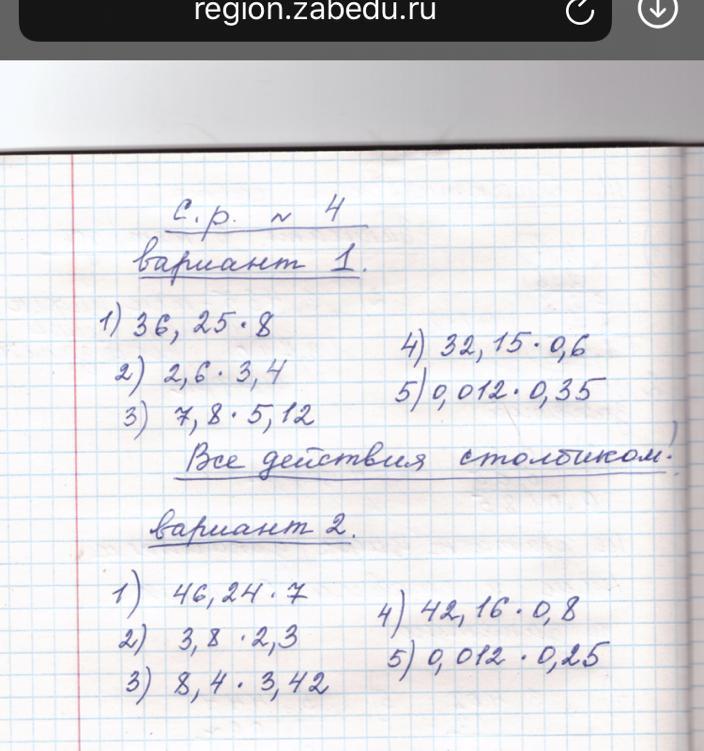 region.zabedu.ru
С.р. ~ 4
вариант 1.
1) 36,25·8
2) 2,6·3,4
3) 7,8·5,12
4) 32,15·0,6
5) 0,012·0,35
Все действия столбиком!
вариант 2.
1) 46,24·7
2) 3,8·2,3
3) 8,4·3,42
4) 42,16·0,8
5) 0,012·0,25